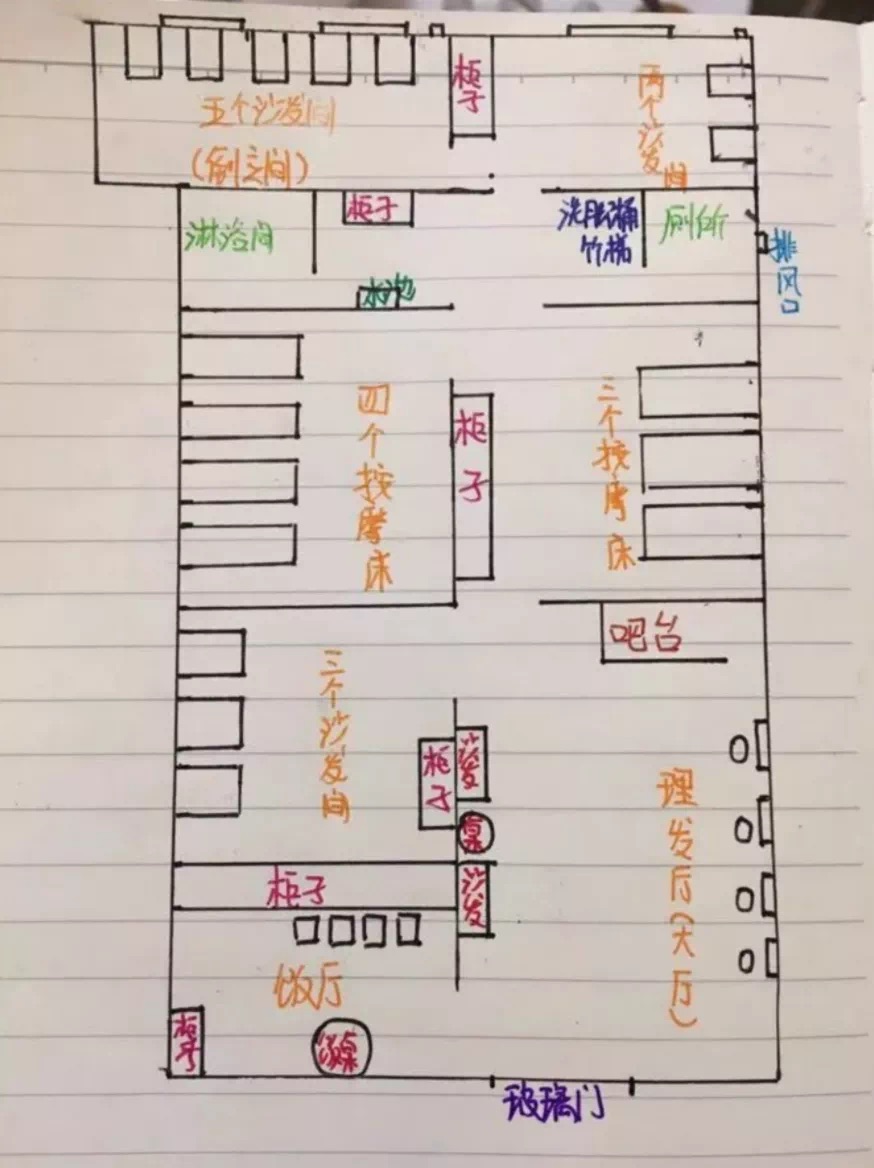 柜子
五个沙发间
(倒立间)
两个沙发间
淋浴间
柜子
洗脚桶
竹梯
厕所
排风口
水池
四个按摩床
柜子
三个按摩床
吧台
三个沙发间
柜子
沙发
桌
沙发
理发厅(大厅)
柜子
饭厅
柜子
饭桌
玻璃门